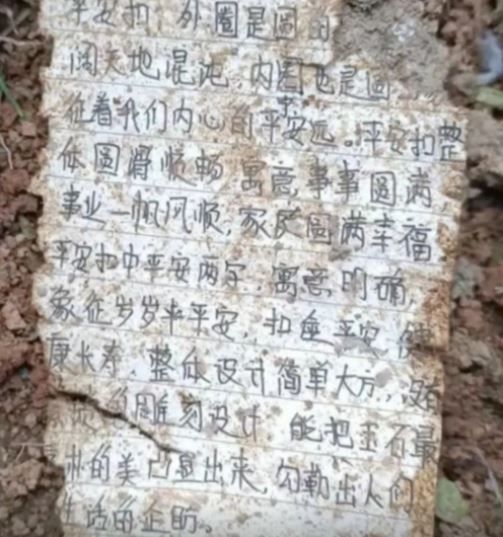 平安扣,外圈是圆的
阔天地混沌,内圈也是圆
征着我们内心的平安远。平安扣整
体圆滑顺畅,寓意事事圆满,
事业一帆风顺,家庭圆满幸福
平安扣中平安两字,寓意明确,
象征岁岁平平安,扣座平安健
康长寿,整体设计简单大方,没有
的雕刻设计 能把玉石最
朴的美凸显出来,勾勒出人们
生活的